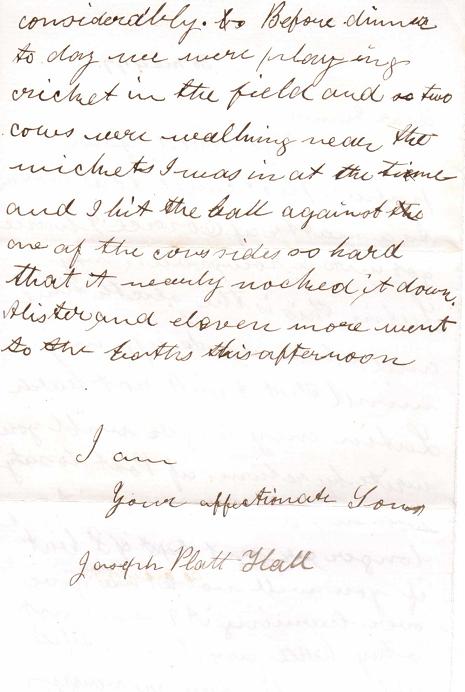 considerably. Before dinner
to day we were playing
cricket in the field and two
cows were walking near the
wickets I was in at the time
and I hit the ball against the
one of the cows sides so hard
that it nearly nocked it down.
Alister and eleven more went
to the baths this afternoon
I am
Your affectionate Son
Joseph Platt Hall